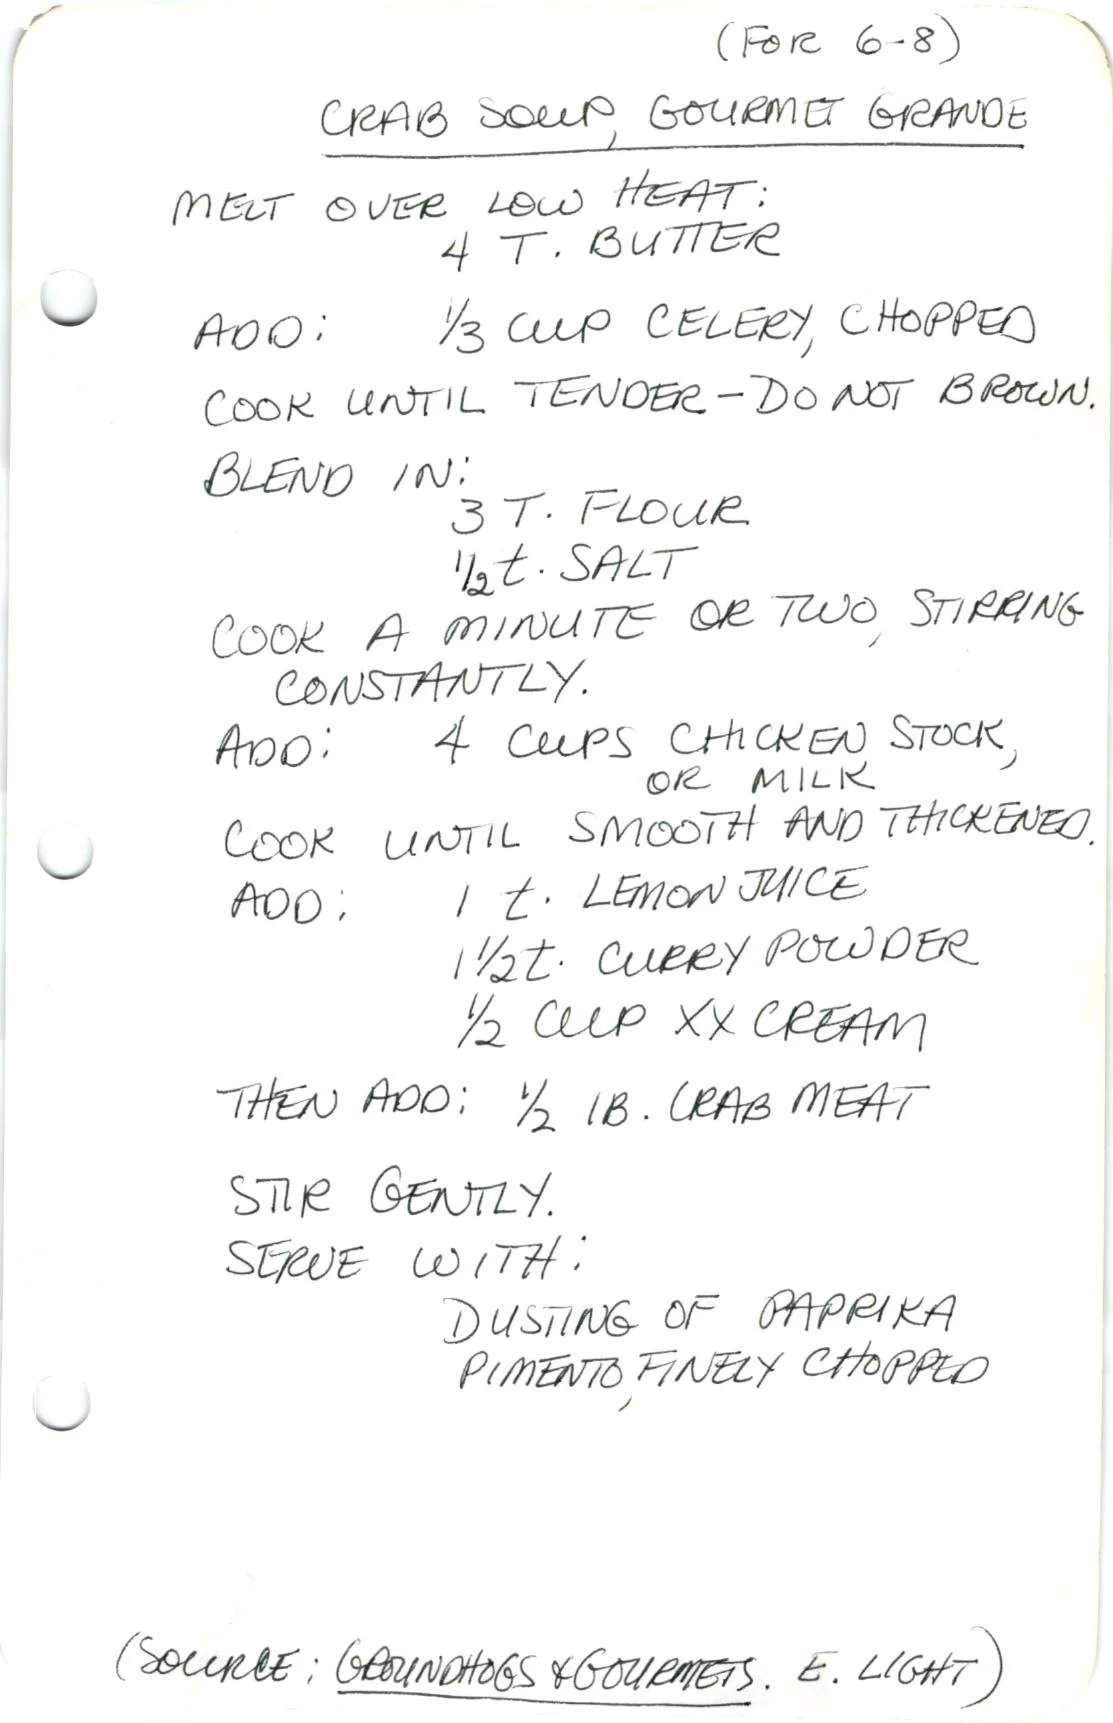 (FOR 6-8)
CRAB SOUP, GOURMET GRANDE
MELT OVER LOW HEAT:
4 T. BUTTER
ADD: 1/3 CUP CELERY, CHOPPED
COOK UNTIL TENDER - DO NOT BROWN.
BLEND IN:
3 T. FLOUR
1/2 t. SALT
COOK A MINUTE OR TWO, STIRRING
CONSTANTLY.
ADD: 4 CUPS CHICKEN STOCK,
OR MILK
COOK UNTIL SMOOTH AND THICKENED.
ADD: 1 t. LEMON JUICE
1 1/2 t. CURRY POWDER
1/2 CUP XX CREAM
THEN ADD: 1/2 lB. CRAB MEAT
STIR GENTLY.
SERVE WITH:
DUSTING OF PAPRIKA
PIMENTO, FINELY CHOPPED
(SOURCE: GROUNDHOGS & GOURMETS. E. LIGHT)